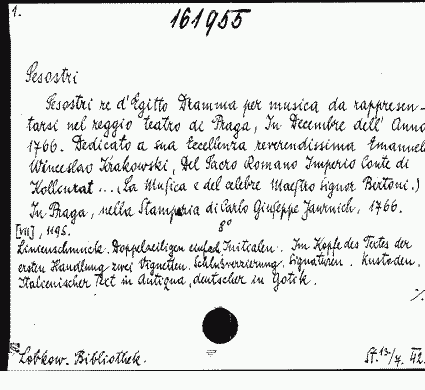 1.
161955
Sesostri
Sesostri re d'Egitto Dramma per musica da rappresen-
tarsi nel reggio teatro di Praga, In Decembre dell' Anno
1766. Dedicato a sua Eccellenza reverendissima Emanuele
Winceslao Krakowski, Del Sacro Romano Imperio Conte di
Kollowrat ... (La Musica e del celebre Maestro Signor Bertoni.)
In Praga, nella Stamparia di Carlo Giuseppe Jaurnich, 1766.
8°
[VII], 119 S.
Linienschmuck. Doppelzeiligen einfach Initialen. Im Kopfe des Textes der
ersten Handlung zwei Vignetten. Schlußverzierung. Signaturen. Kustoden.
Italienischer Text in Antiqua, deutscher in Gotik.
./.
Lobkow. Bibliothek.
St. 13./7. 42.